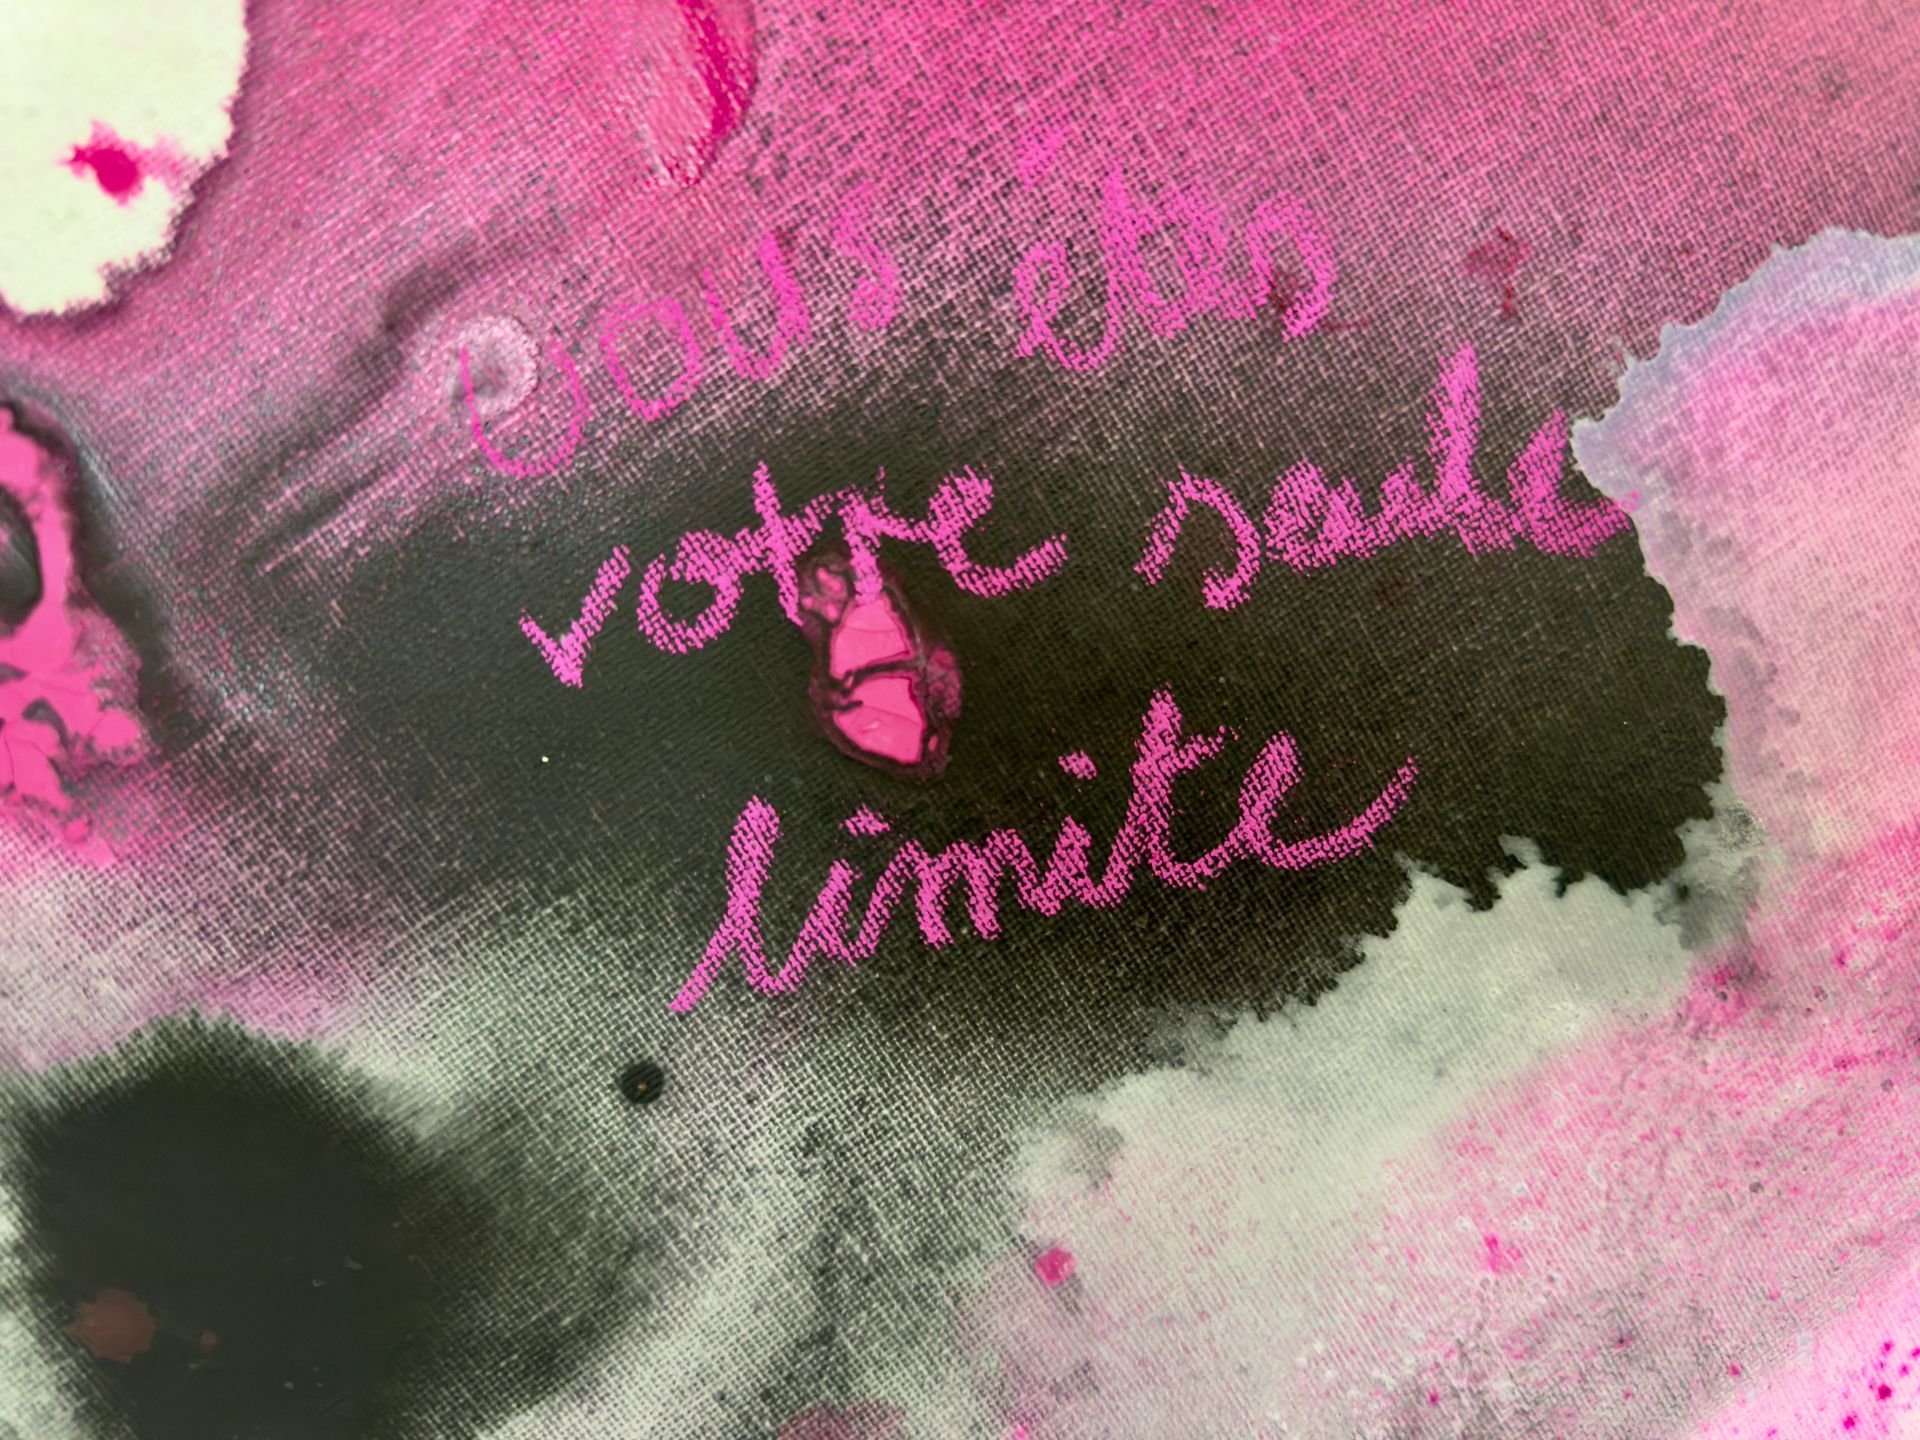 vous êtes
votre seule
limite